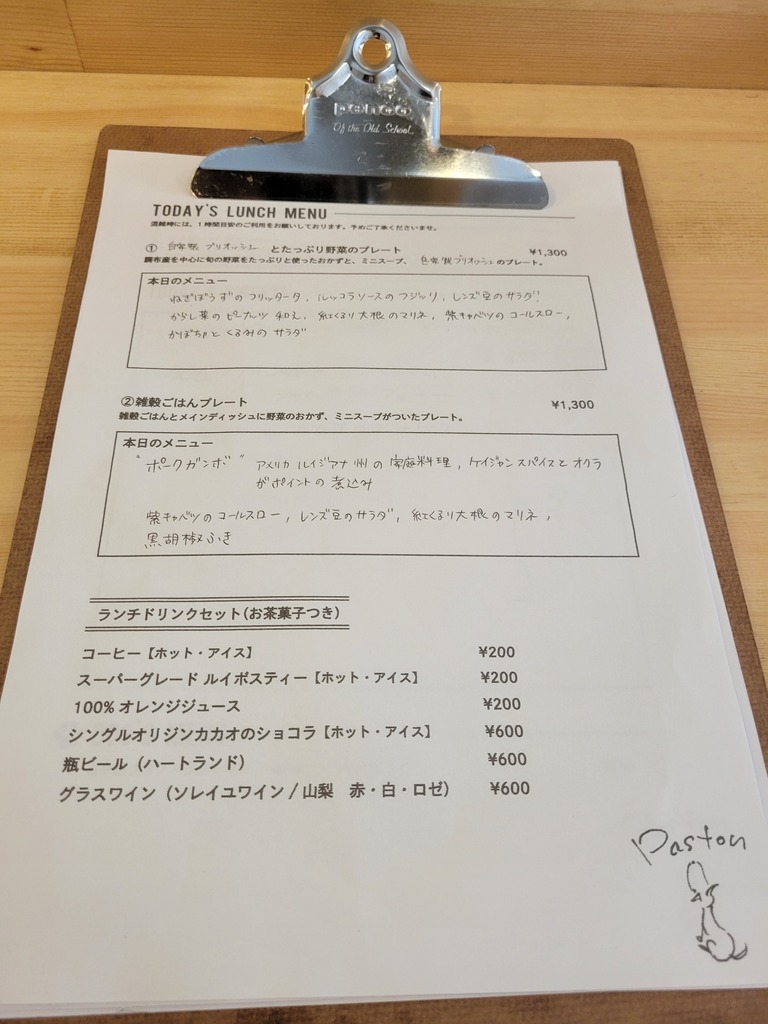 penco
Of the Old School.
TODAY'S LUNCH MENU
混雑時には、1時間目安のご利用をお願いしております。予めご了承くださいませ。
① 自家製 ブリオッシュ とたっぷり野菜のプレート ¥1,300
調布産を中心に旬の野菜をたっぷりと使ったおかずと、ミニスープ、 自家製ブリオッシュ のプレート。
本日のメニュー
ねぎぼうずのフリッタータ, ルッコラソースのフジッリ, レンズ豆のサラダ,
からし菜のピーナッツ和え, 紅くるり大根のマリネ, 紫キャベツのコールスロー,
かぼちゃとくるみのサラダ
②雑穀ごはんプレート ¥1,300
雑穀ごはんとメインディッシュに野菜のおかず、ミニスープがついたプレート。
本日のメニュー
"ポークガンボ" アメリカ ルイジアナ州の家庭料理, ケイジャンスパイスとオクラ
がポイントの煮込み
紫キャベツのコールスロー, レンズ豆のサラダ, 紅くるり大根のマリネ,
黒胡椒ふき
ランチドリンクセット(お茶菓子つき)
コーヒー【ホット・アイス】 ¥200
スーパーグレード ルイボスティー【ホット・アイス】 ¥200
100% オレンジジュース ¥200
シングルオリジンカカオのショコラ【ホット・アイス】 ¥600
瓶ビール（ハートランド） ¥600
グラスワイン（ソレイユワイン / 山梨 赤・白・ロゼ） ¥600
Paston